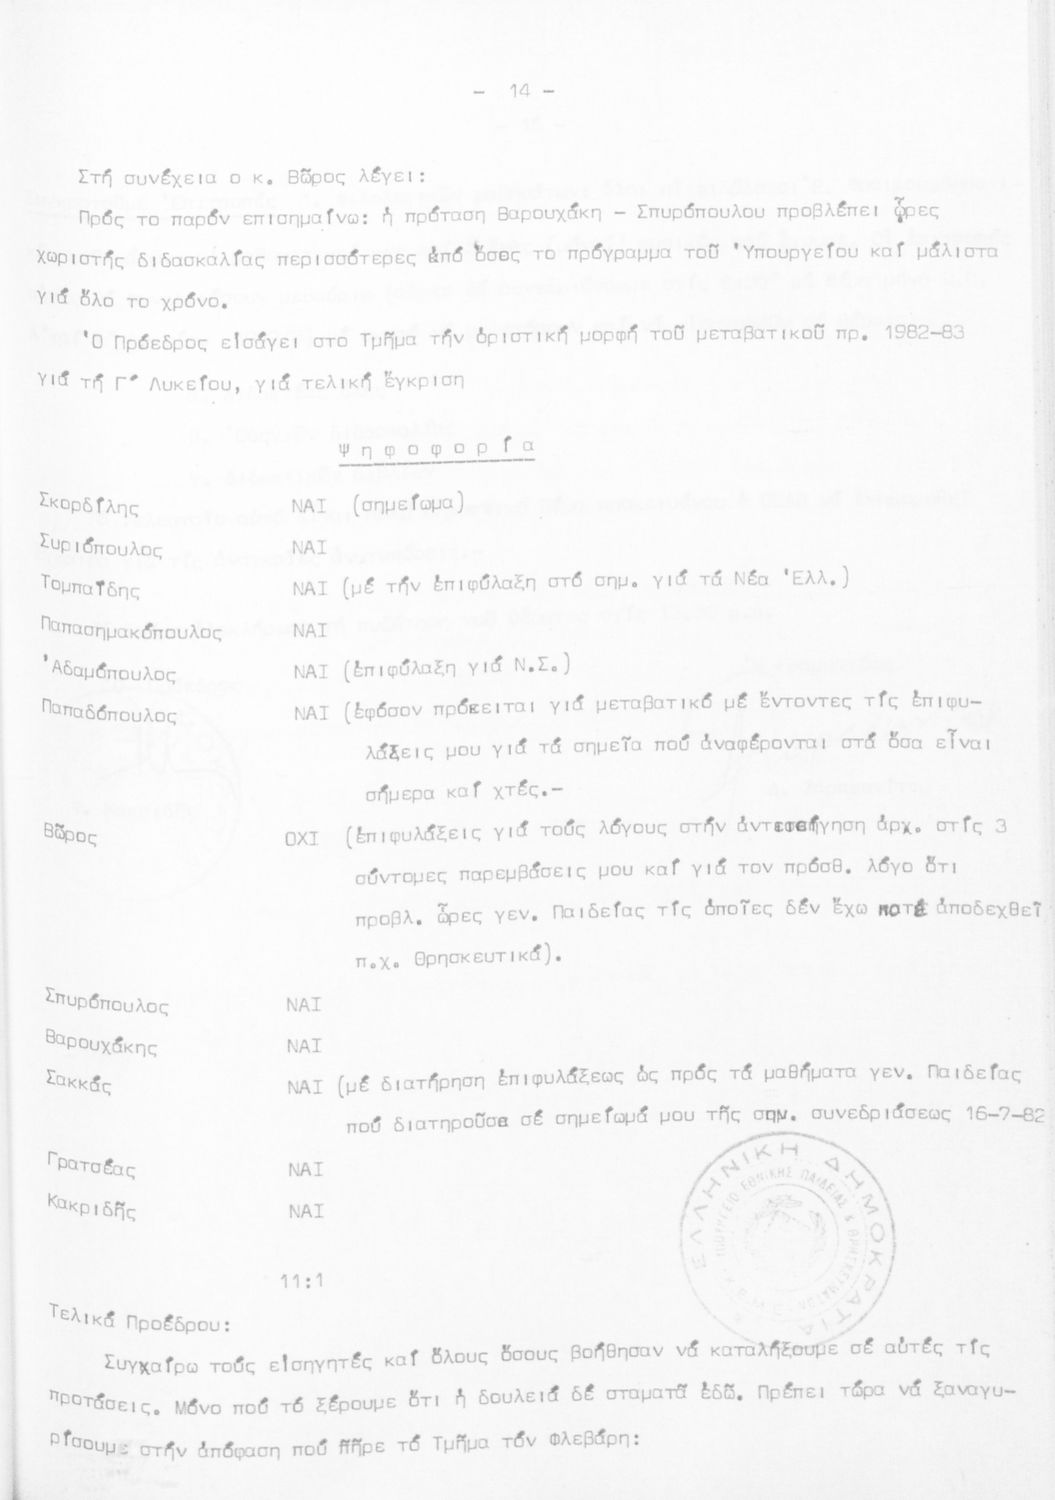 - 14 -
Στή συνέχεια ο κ. Βῶρος λέγει:
Πρός το παρόν επισημαίνω: ἡ πρόταση Βαρουχάκη - Σπυρόπουλου προβλέπει ὧρες
χωριστής διδασκαλίας περισσότερες ἀπό ὅσες το πρόγραμμα τοῦ Ὑπουργείου καί μάλιστα
γιά ὅλο το χρόνο.
Ὁ Πρόεδρος εἰσάγει στο Τμῆμα τήν ὁριστική μορφή τοῦ μεταβατικοῦ πρ. 1982-83
γιά τή Γ' Λυκείου, γιά τελική ἔγκριση
Ψ η φ ο φ ο ρ ί α
Σκορδίλης ΝΑΙ (σημείωμα)
Συριόπουλος ΝΑΙ
Τομπαΐδης ΝΑΙ (μέ τήν ἐπιφύλαξη στό σημ. γιά τά Νέα Ἑλλ.)
Παπασημακόπουλος ΝΑΙ
Ἀδαμόπουλος ΝΑΙ (ἐπιφύλαξη γιά Ν.Σ.)
Παπαδόπουλος ΝΑΙ (ἐφόσον πρόκειται γιά μεταβατικό μέ ἔντοντες τίς ἐπιφυ-
λάξεις μου γιά τά σημεῖα πού ἀναφέρονται στά ὅσα εἶναι
σήμερα καί χτές.-
Βῶρος ΟΧΙ (ἐπιφυλάξεις γιά τούς λόγους στήν ἀντεισήγηση ἀρχ. στίς 3
σύντομες παρεμβάσεις μου καί γιά τον πρόσθ. λόγο ὅτι
προβλ. ὧρες γεν. Παιδείας τίς ὁποῖες δέν ἔχω ποτέ ἀποδεχθεῖ
π.χ. Θρησκευτικά).
Σπυρόπουλος ΝΑΙ
Βαρουχάκης ΝΑΙ
Σακκάς ΝΑΙ (μέ διατήρηση ἐπιφυλάξεως ὡς πρός τά μαθήματα γεν. Παιδείας
πού διατηροῦσα σέ σημείωμά μου τῆς σην. συνεδριάσεως 16-7-82
Γρατσέας ΝΑΙ
Κακριδῆς ΝΑΙ
11:1
ΕΛΛΗΝΙΚΗ ΔΗΜΟΚΡΑΤΙΑ
ΥΠΟΥΡΓΕΙΟ ΕΘΝΙΚΗΣ ΠΑΙΔΕΙΑΣ & ΘΡΗΣΚΕΥΜΑΤΩΝ
Κ.Ε.Μ.Ε.
Τελικά Προέδρου:
Συγχαίρω τούς εἰσηγητές καί ὅλους ὅσους βοήθησαν νά καταλήξουμε σέ αὐτές τίς
προτάσεις. Μόνο πού τό ξέρουμε ὅτι ἡ δουλειά δέ σταματᾶ ἐδῶ. Πρέπει τώρα νά ξαναγυ-
ρίσουμε στήν ἀπόφαση πού πῆρε τό Τμῆμα τόν Φλεβάρη: